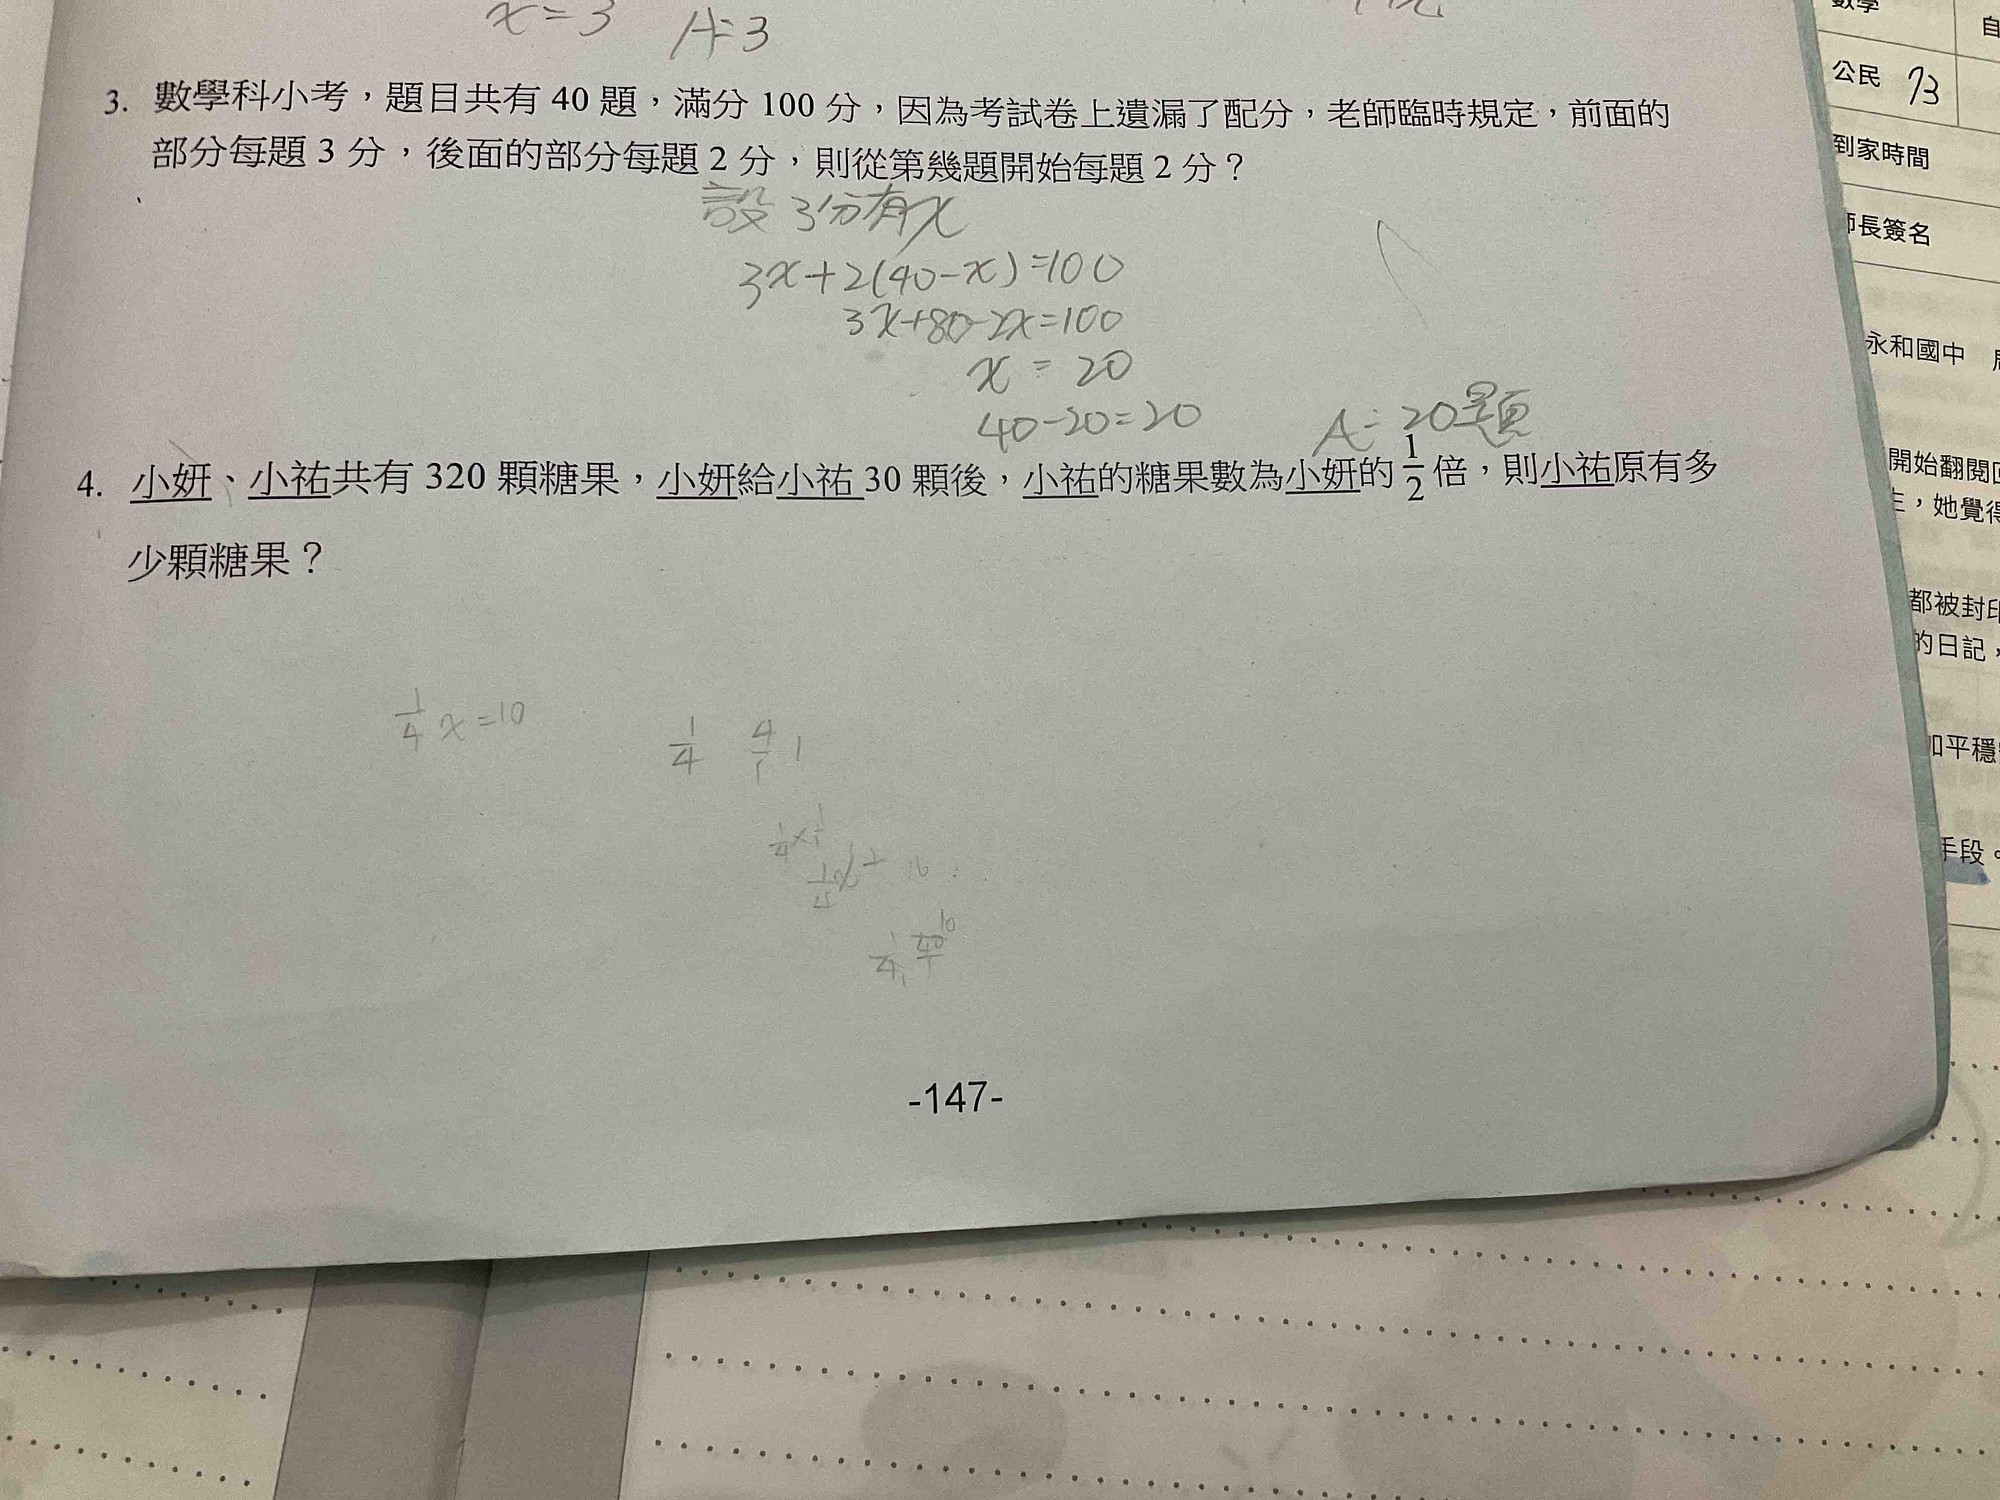 x=3 A=3
3. 數學科小考，題目共有 40 題，滿分 100 分，因為考試卷上遺漏了配分，老師臨時規定，前面的
部分每題 3 分，後面的部分每題 2 分，則從第幾題開始每題 2 分？
設 3分有x
3x+2(40-x)=100
3x+80-2x=100
x = 20
40-20=20 A=20題
4. 小妍、小祐共有 320 顆糖果，小妍給小祐 30 顆後，小祐的糖果數為小妍的 1/2 倍，則小祐原有多
少顆糖果？
1/4 x=10
1/4 4/1 1
-147-
數學
自
公民 73
到家時間
師長簽名
永和國中
開始翻閱
，她覺得
都被封印
的日記，
加平穩
手段。